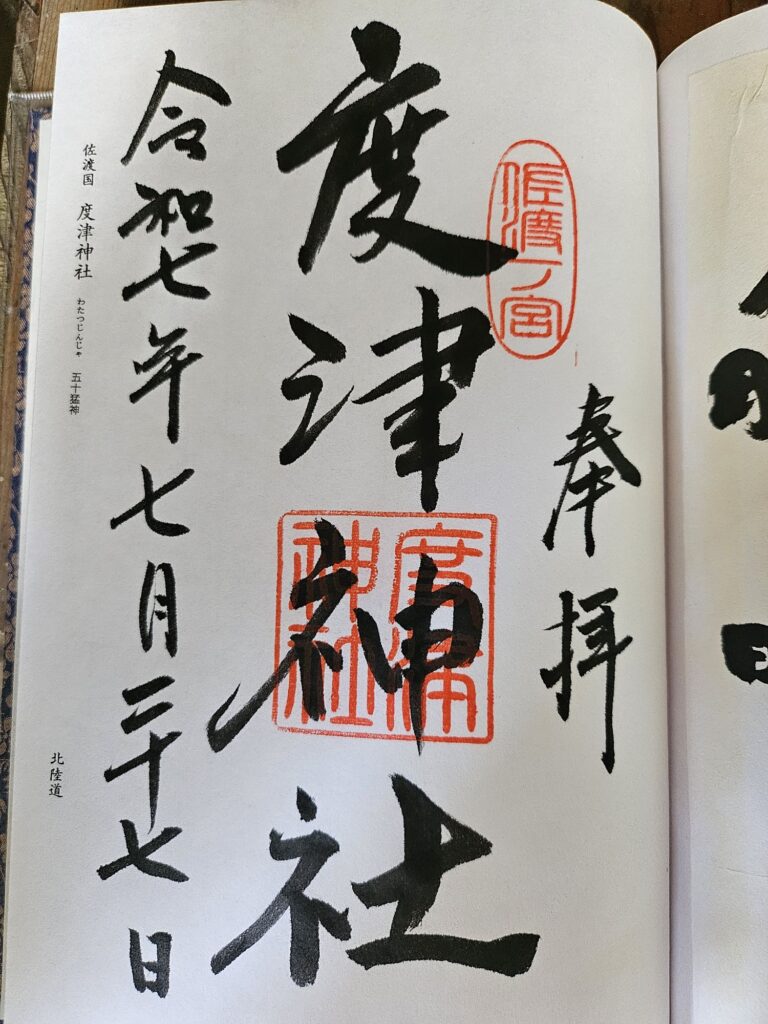 奉拝
佐渡一ノ宮
度津神社
度津神社
令和七年七月二十七日
佐渡国 度津神社 わたつじんじゃ 五十猛神
北陸道